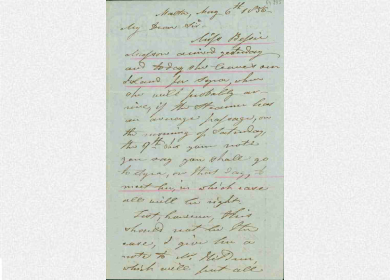 Malta, Aug 6th 1856.
My Dear Sir,
Miss Bessie
arrived yesterday
and today she leaves our
Island for Syra, where
she will probably ar-
rive, if the Steamer has
an average passage, on
the morning of Saturday
the 9th. In your note
you say you shall go
to Syra, on that day, to
meet her, in which case
all will be right.
Lest, however, this
should not be the
case, I give her a
note to Mr.
which will put all